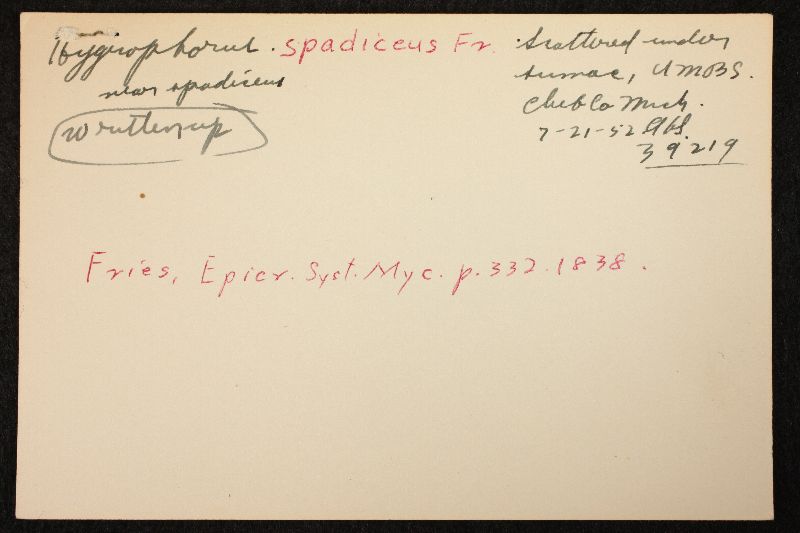 Hygrophorus. spadiceus Fr.
near spadiceus
Written up
Scattered under
sumac, UMOBS.
Cheb Co Mich.
7-21-52 AHS.
39219
Fries, Epicr. Syst. Myc. p. 332. 1838.